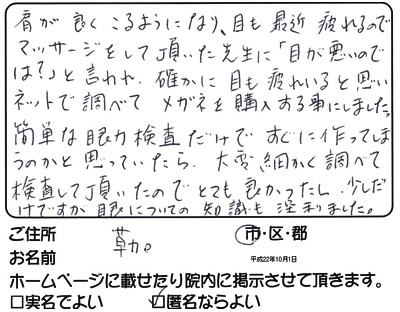 肩が良くこるようになり、目も最近疲れるので
マッサージをして頂いた先生に「目が悪いので
は?」と言われ、確かに目も疲れいると思い
ネットで調べてメガネを購入する事にしました。
簡単な眼力検査だけですぐに作ってしま
うのかと思っていたら、大変細かく調べて
検査して頂いたのでとても良かったし、少しだ
けですが眼についての知識も深まりました。
ご住所 草加 市・区・郡
お名前 平成22年10月1日
ホームページに載せたり院内に掲示させて頂きます。
□実名でよい ☑匿名ならよい